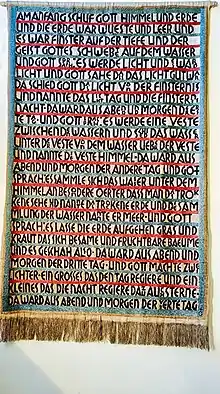 AM ANFANG SCHUF GOTT HIMMEL UND ERDE
UND DIE ERDE WAR WUEST UND LEER UND
ES WAR FINSTER AUF DER TIEFE UND DER
GEIST GOTTES SCHWEBT AUF DEM WASSER
UND GOTT SPR: ES WERDE LICHT UND S WAR
LICHT UND GOTT SAHE DA DS LICHT GUT WAR
DA SCHIED GOTT DS LICHT VON DER FINSTERNIS
UND NANNTE DAS LICHT TAG UND DIE FINSTERNIS
NACHT DA WARD AUS ABEND UND MORGEN DS ERS
TE TAG UND GOTT SPR: ES WERDE EINE VESTE
ZWISCHEN DEN WASSERN UND DAS WASS
UNTER DER VESTE VON DEM WASSER UEBER DER VESTE
UND NANNTE DIE VESTE HIMMEL DA WARD AUS
ABEND UND MORGEN DER ANDERE TAG UND GOTT
SPRACH ES SAMMLE SICH DAS WASSER UNTER DEM
HIMMEL AN BESONDERE OERTER DAS MAN DS TRO
KENE SEHE UND NANNTE DS TROKENE ERDE UND DIE SAM
MLUNG DER WASSER NANTE ER MEER UND GOTT
SPRACH ES LASSE DIE ERDE AUFGEHEN GRAS UND
KRAUT DAS SICH BESAME UND FRUCHTBARE BAEUME
UND ES GESCHAH ALSO DA WARD AUS ABEND UND
MORGEN DER DRITTE TAG UND GOTT MACHTE ZWEI
LICHTER EIN GROSSES DAS DEN TAG REGIERE UND EIN
KLEINES DAS DIE NACHT REGIERE DAZU AUCH STERNE
DA WARD AUS ABEND UND MORGEN DER VIERTE TAG